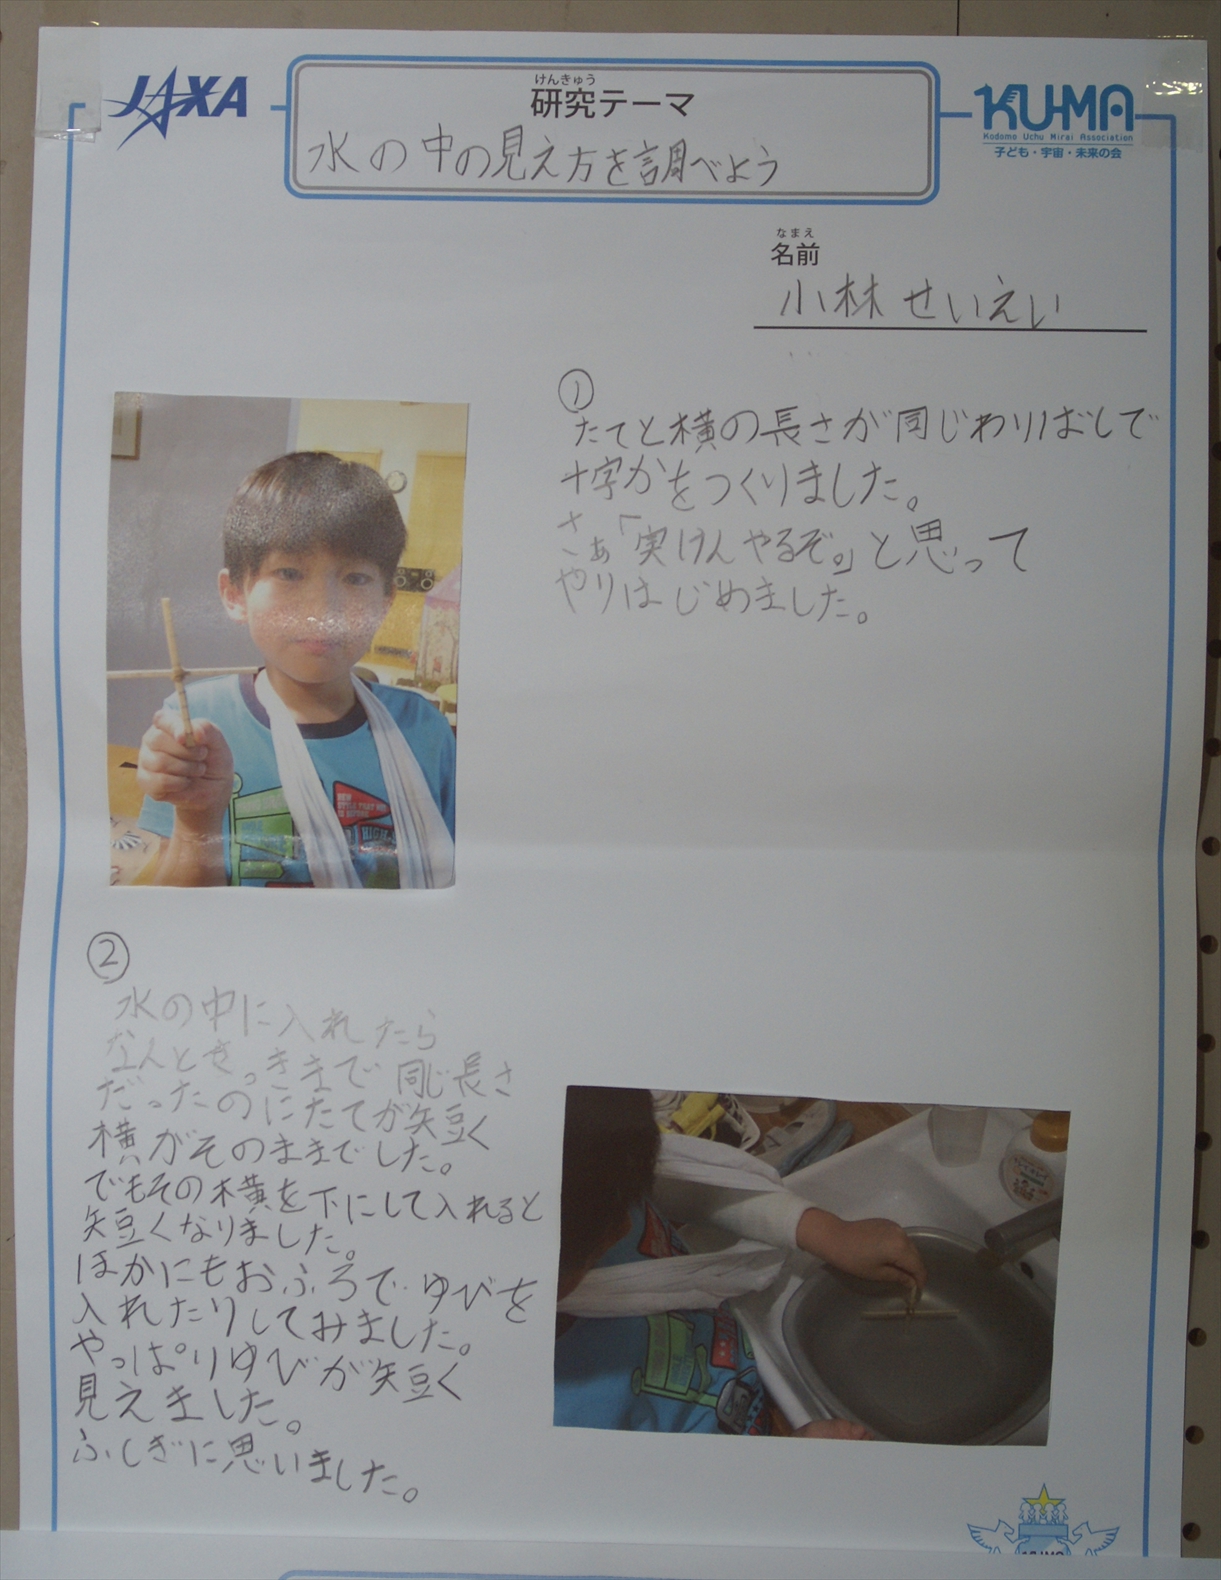 JAXA
けんきゅう
研究テーマ
水の中の見え方を調べよう
KU-MA
Kodomo Uchu Mirai Association
子ども・宇宙・未来の会
なまえ
名前
小林せいえい
①
たてと横の長さが同じわりばしで
十字かをつくりました。
さぁ「実けんやるぞ。」と思って
やりはじめました。
②
水の中に入れたら
なんとさっきまで同じ長さ
だったのにたてが短く
横がそのままでした。
でもその横を下にして入れると
短くなりました。
ほかにもおふろでゆびを
入れたりしてみました。
やっぱりゆびが短く
見えました。
ふしぎに思いました。